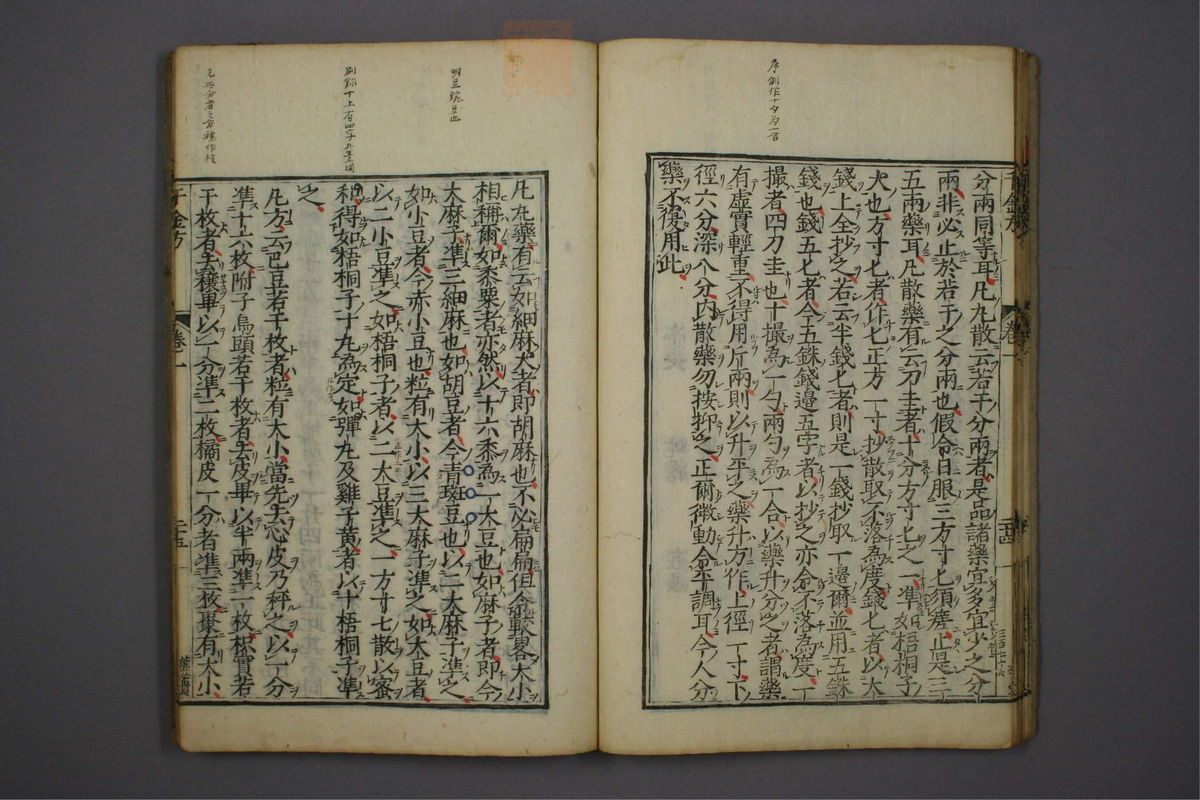 序例作十夕為一合
分兩同等耳凡丸散云若干分兩者是品諸藥宜多宜少之分
兩非必止於若干之分兩也假令日服三方寸匕須瘥止是三
五兩藥耳凡散藥有云刀圭者十分方寸匕之一準如梧桐子
大也方寸匕者作匕正方一寸抄散取不落為度錢匕者以大
錢上全抄之若云半錢匕者則是一錢抄取一邊爾並用五銖
錢也錢五匕者今五銖錢邊五字者以抄之亦令不落為度一
撮者四刀圭也十撮為一勺兩勺為一合以藥升分之者謂藥
有虛實輕重不得用斤兩則以升平之藥升方作上徑一寸下
徑六分深八分內散藥勿按抑之正爾微動令平調耳今人分
藥不復用此
千金方
卷一
明豆豌豆也
凡丸藥有云如細麻大者即胡麻也不必扁扁但令較略大小
相稱爾如黍粟者亦然以十六黍為一大豆也如麻子者即今
大麻子準三細麻也如胡豆者今青斑豆也以二大麻子準之
如小豆者今赤小豆也粒有大小以三大麻子準之如大豆者
以二小豆準之如梧桐子者以二大豆準之一方寸匕散以蜜
和得如梧桐子十丸為定如彈丸及雞子黃者以十梧桐子準
之
凡方云巴豆若干枚者粒有大小當先去心皮乃秤之以一分
準十六枚附子烏頭若干枚者去皮畢以半兩準一枚枳實若
干枚者去穰畢以一分準二枚橘皮一分者準三枚棗有大小
千金方
卷一
二十五